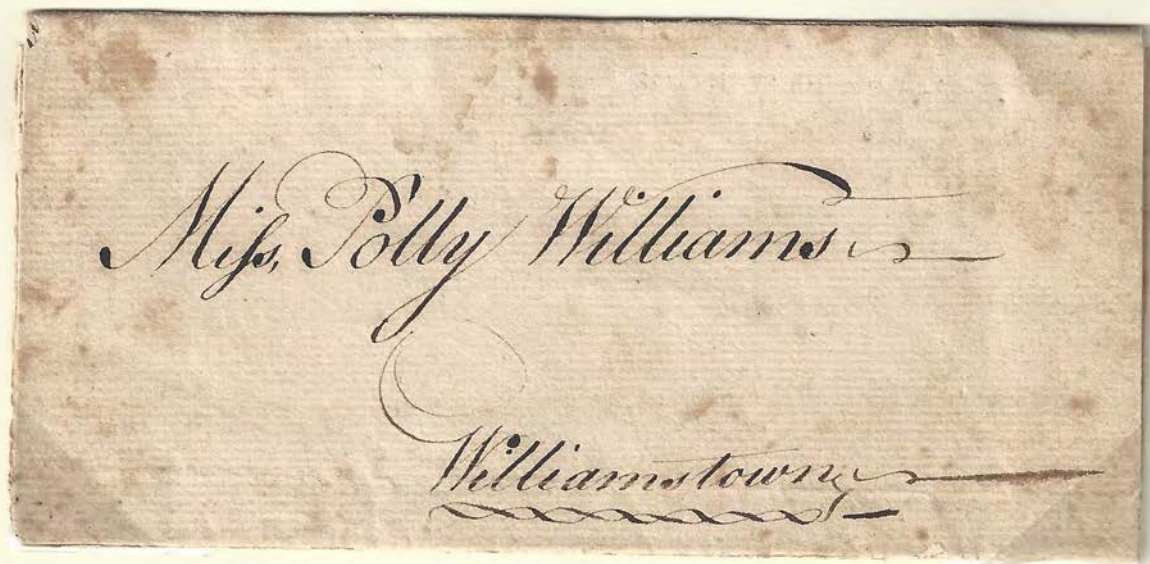 Miſs, Polly Williams
Williamstown